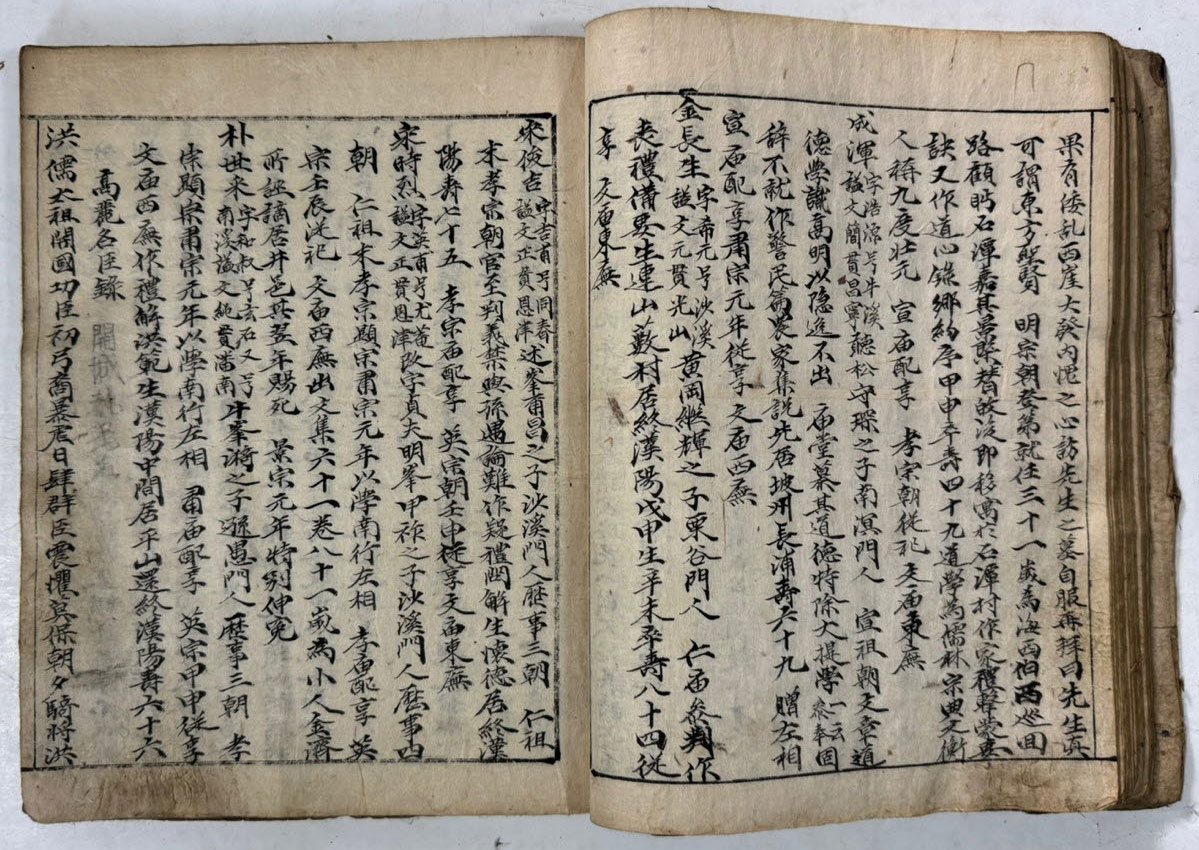 果有倭乱西崖大發內愧之心訪先生之墓白服再拜曰先生真
可謂東方聖賢 明宗朝登第就仕三十一歲為海西伯西巡回
路顧眄石潭嘉其 即移寓於石潭村作家禮擊蒙要
訣又作道心 鄉約序甲申卒壽四十九道學為儒林宗典文衡
人稱九度壯元 宣庙配享 孝宗朝從祀文庙東廡
成渾 字浩源号牛溪 謚文簡貫昌寧 聽松守琛之子南溟門人 宣祖朝文章道
德學識高明以隐進不出 庙堂慕其道德特除大提學 一云 參奉 固
辞不就作警民篇農家集說先居坡州長浦壽六十九 贈左相
宣庙配享肅宗元年從享文庙西廡
金長生 字希元号沙溪 謚文元貫光山 黃岡繼輝之子東谷門人 仁庙參判作
丧禮備要生連山藪村居終漢陽戊申生辛未卒壽八十四從
享 文庙東廡
宋俊吉 字吉甫号同春 謚文正貫恩津 述峯甫昌之子沙溪門人歷事三朝 仁祖
末孝宗朝官至判義禁與孫遇論難作疑禮問解生懷德居終漢
陽壽七十五 孝宗庙配享 英宗朝壬申從享文庙東廡
宋時烈 字英甫号尤菴 謚文正貫恩津 改字貞夫明峯甲祚之子沙溪門人歷事四
朝 仁祖末孝宗顯宗肅宗元年以學南行左相 孝庙配享 英
宗壬辰從祀 文庙西廡出文集六十一卷八十一歲為小人金濟
所誣謫居井邑其翌年賜死 景宗元年特别伸寃
朴世采 字和叔号玄石又号 南溪謚文純貫潘南 斗峯濔之子遯愚門人歷事三朝 孝
宗顯宗肅宗元年以學南行左相 肅庙配享 英宗甲申從享
文庙西廡作禮解洪範生漢陽中間居平山還終漢陽壽六十六
高麗名臣錄
洪儒太祖開國功臣初弓裔暴虐日肆群臣震懼莫保朝夕騎将洪